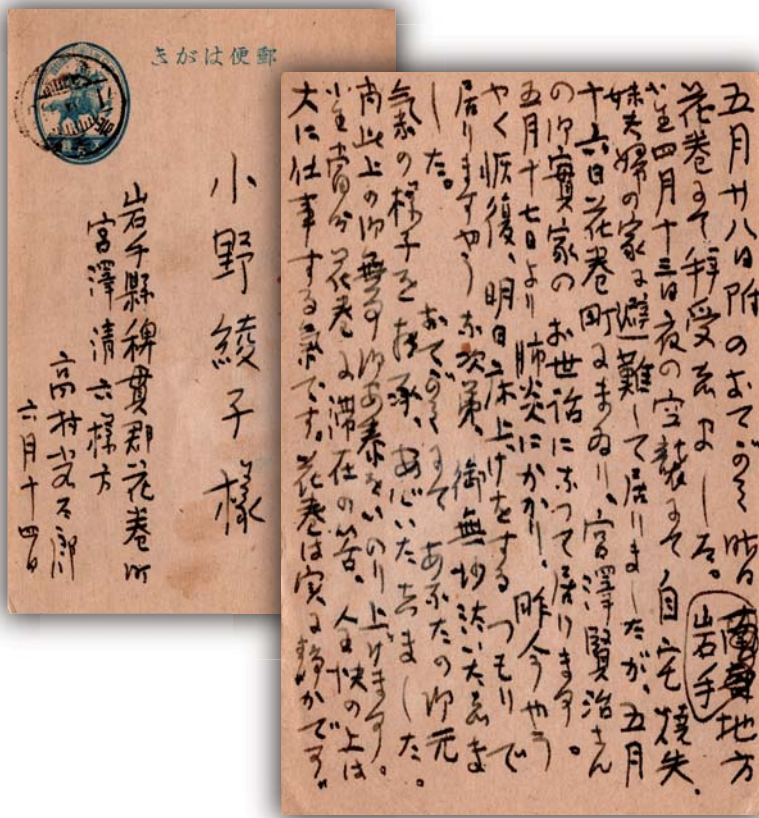 郵便はがき
小野綾子様
岩手縣稗貫郡花巻町
宮澤清六様方
高村光太郎
六月十四日
五月廿八日附のおてがみ昨日南部地方
岩手
花巻にて拝受しました。
小生四月十三日夜の空襲にて自宅焼失、
妹夫婦の家に避難して居りましたが、五月
十六日花巻町にまゐり、宮澤賢治さん
の御實家のお世話になつて居ります。
五月十七日より肺炎にかかり、昨今やう
やく恢復、明日床上げをするつもりで
居りますやうな次第、御無沙汰いたしま
した。おてがみにてあなたの御元
氣の様子を拝承、安心いたしました。
尚此上の御無事御安泰をいのり上げます。
小生當分花巻に滞在の筈、全快の上は
大に仕事する氣です。花巻は実に静かです。